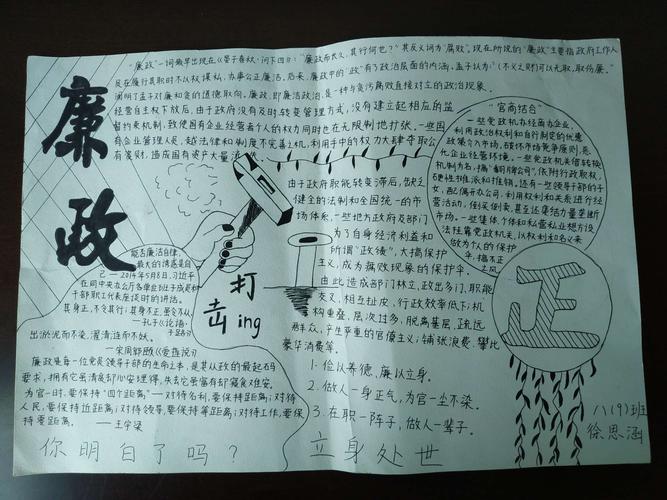 廉政
"廉政"一词最早出现在《晏子春秋·问下四》:"廉政而长久,其行何也?"其反义词为"腐败"。现在所说的"廉政"主要指政府工作人
员在履行其职时不以权谋私,办事公正廉洁。后来,廉政中的"政"有了政治层面的内涵,孟子认为:"不义之财可以无取,取伤廉。"
阐明了孟子对廉和贪的道德取向。廉政,即廉洁政治,是一种与贪污腐败直接对立的政治现象。
经营自主权下放后,由于政府没有及时转变管理方式,没有建立起相应的监
督约束机制,致使国有企业经营者个人的权力同时也在无限制地扩张。一些国
有企业管理人员,越法律和制度不完善之机,利用手中的权力大肆夺取公
有资财,造成国有资产大量流失
由于政府职能转变滞后,缺乏
健全的法制和全国统一的市
场体系,一些地方政府及部门
为了自身经济利益和
所谓"政绩",大搞保护
主义,成为腐败现象的保护伞。
由此造成部门林立,政出多门,职能
交叉,相互扯皮,行政效率低下;机
构重叠,层次过多,脱离基层,疏远
群众,产生严重的官僚主义;铺张浪费,攀比
豪华消费等。
"官商结合"
一些党政机办经商办企业,
利用政治权利和自行制定的优惠
政策介入市场,破坏市场竞争原则,恶
化企业经营环境。一些党政机关借转换
机制为名,搞"翻牌公司",依附行政职权,
硬性摊派和推销。还有一些领导干部的子
女,配偶开办公司,利用权利和关系进行经
营活动,任买任卖,甚至还集结力量垄断
市场。一些集体个体和私营私企业想方设
法挂靠党政机关,以权利和名义来
做为个人的保护
伞,搞不正
之风
能否廉洁自律,
最大的诱惑是自
己—2014年5月8日,习近平
在同中央办公厅各单位班子成员和
干部职工代表座谈时的讲话。
其身正,不令其行;其身不正,虽令不从
—孔子《论语·
子路》
出淤泥而不染,濯清涟而不妖。
—宋周敦颐《爱莲说》
廉政是每一位党员领导干部的生命之本,是其从政的最起码
要求,拥有它虽清贫却心安理得,失去它虽富有却寝食难安。
为官一时,要保持"四个距离"—对待名利,要保持距离;对待
人民,要保持近距离;对待领导,要保持等距离;对待工作,要保
持零距离。 —王宇梁
打
击ing
正
1.俭以养德,廉以立身。
2.做人一身正气,为官一尘不染。
3.在职一阵子,做人一辈子。
你明白了吗?
立身处世
八(9)班
徐思涵